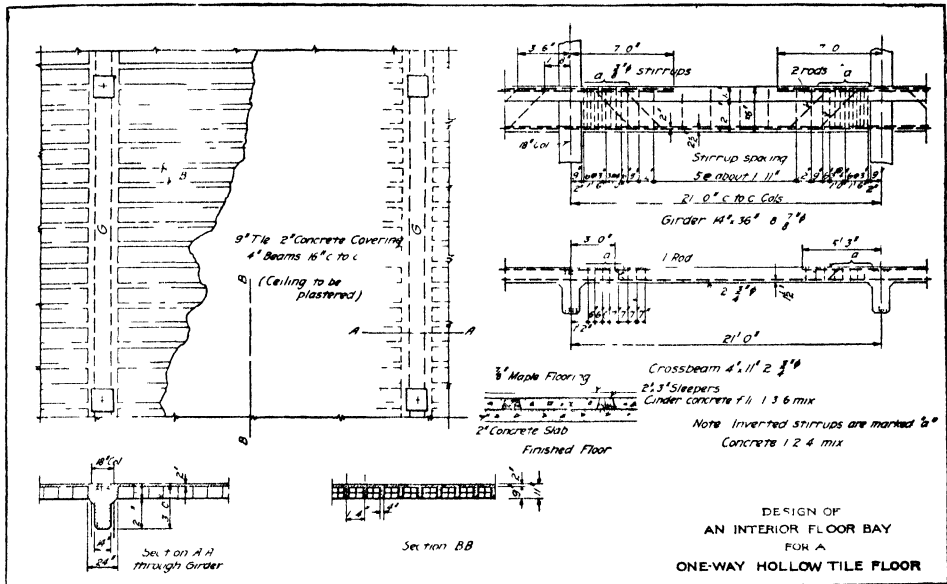 B
G
G
9" Tile 2" Concrete Covering
4" Beams 16" c to c
(Ceiling to be
plastered)
B
A A
B
3' 6" 7' 0" 7' 0
a 3/8" φ stirrups
2 rods a
18" Col
Stirrup spacing
5 @ about 1' 11"
21' 0" c to c Cols
Girder 14" x 36" 8 7/8" φ
3' 0" 5' 3"
a 1 Rod a
2 3/4" φ
21' 0"
Crossbeam 4" x 11" 2 3/4" φ
7/8" Maple Flooring
2" x 3" Sleepers
Cinder concrete fill 1 3 6 mix
2" Concrete Slab
Finished Floor
Note Inverted stirrups are marked "a"
Concrete 1 2 4 mix
18" Col
2"
14"
24"
Section AA
through Girder
4"
9" 2"
11"
Section BB
DESIGN OF
AN INTERIOR FLOOR BAY
FOR A
ONE-WAY HOLLOW TILE FLOOR